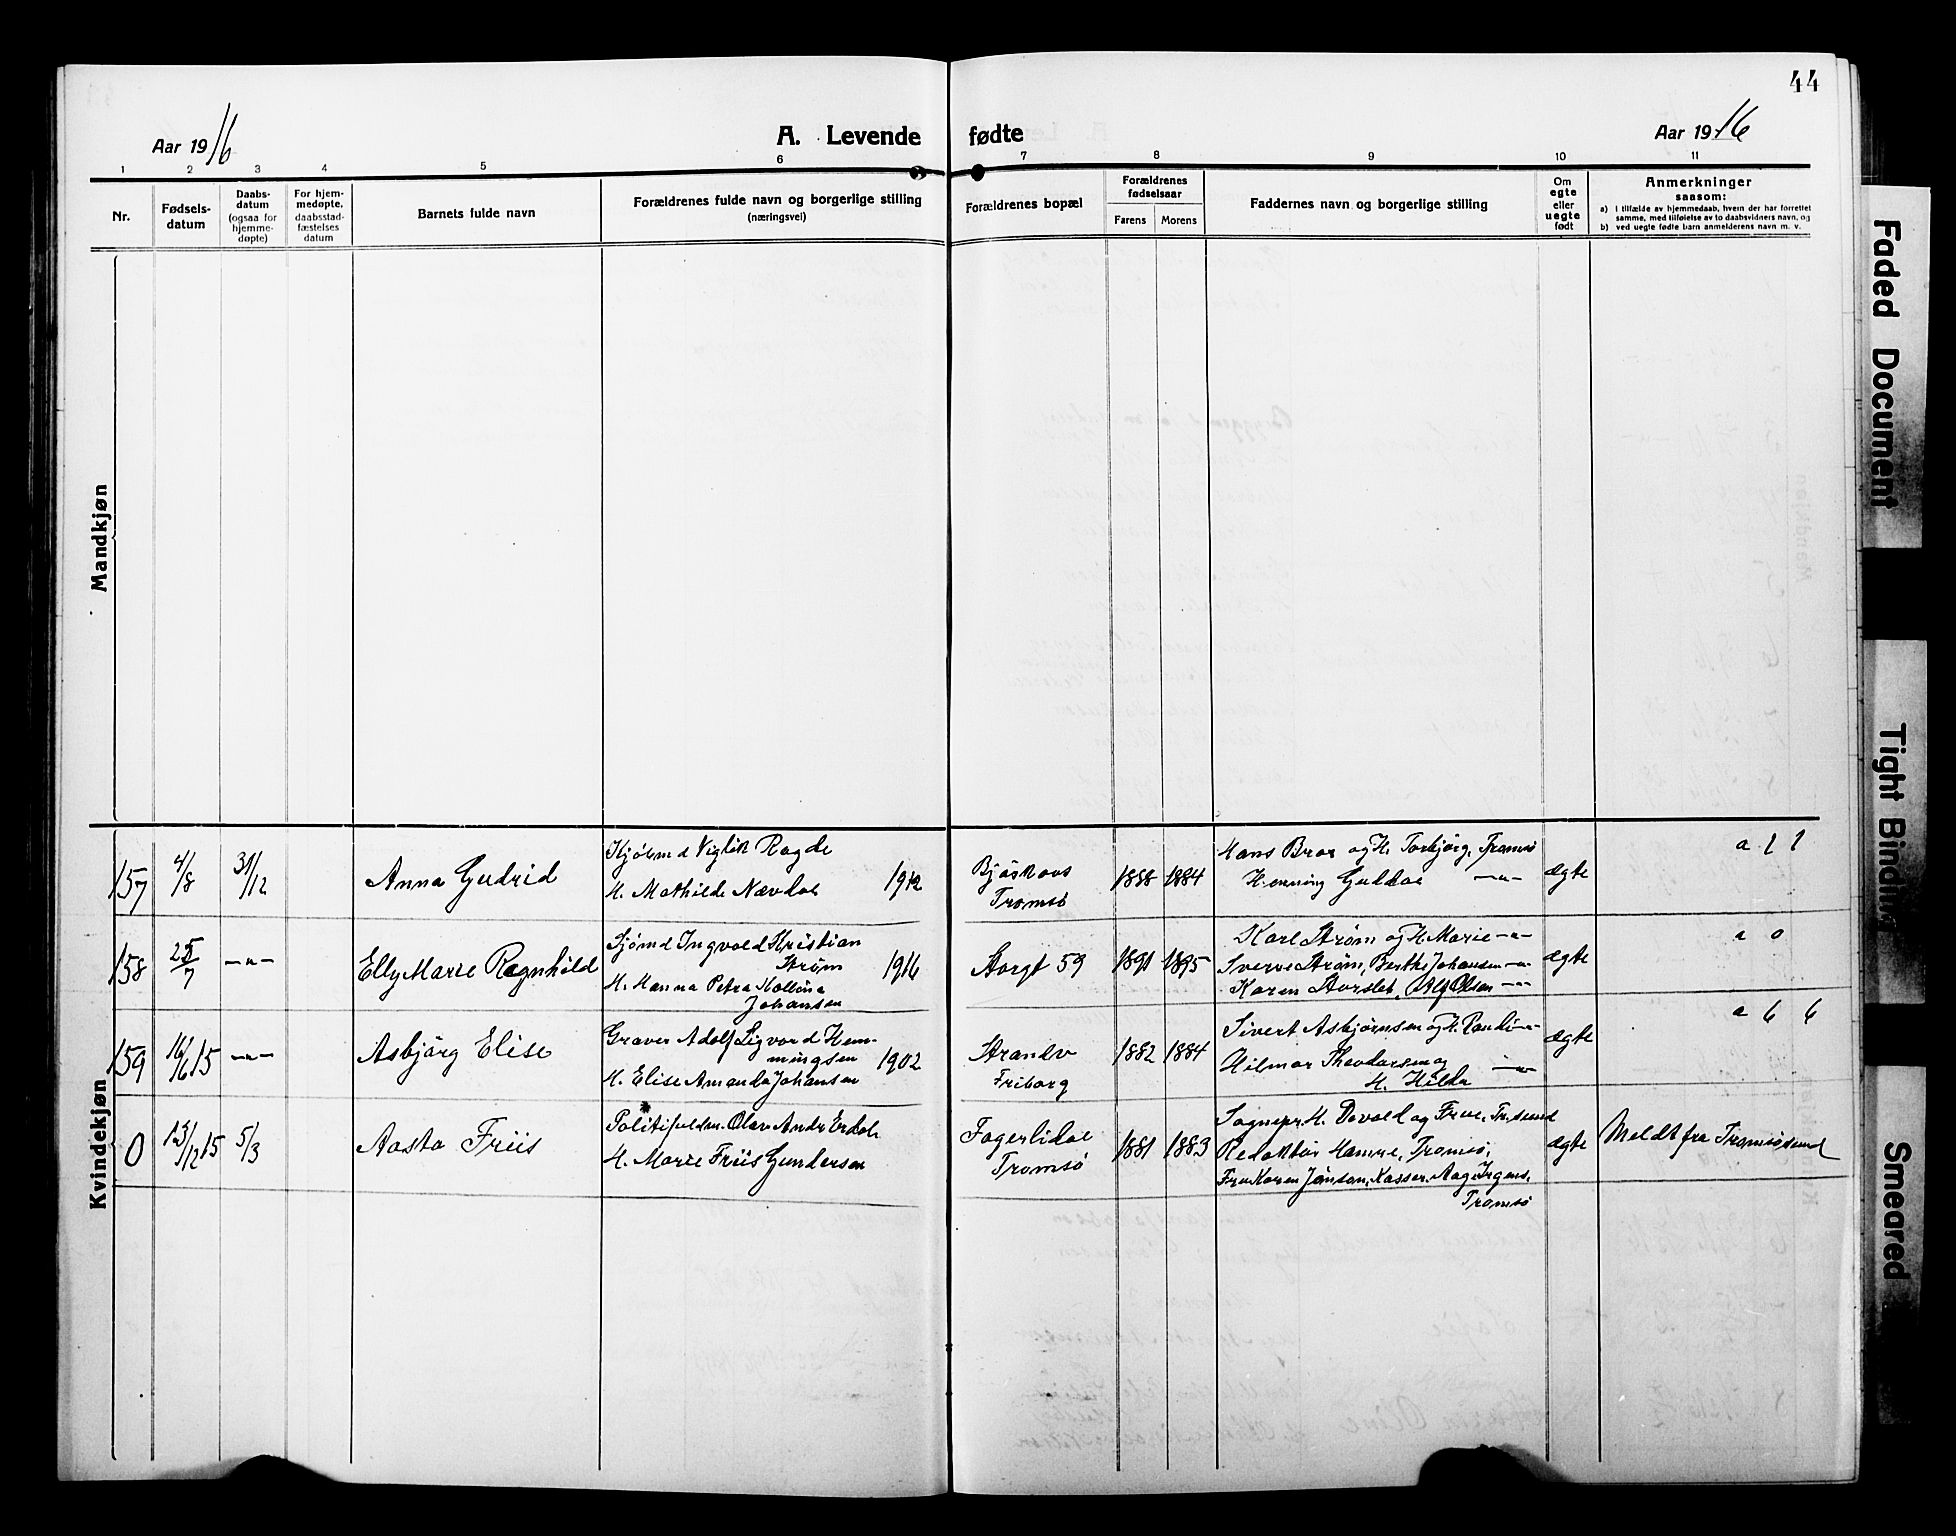 44
Aar 1916
A. Levende fødte
Aar 1916
1 2 3 4 5 6 7 8 9 10 11
Nr.
Fødsels-
datum
Daabs-
datum
(ogsaa for
hjemme-
døpte)
For hjem-
medøpte,
daabsstad-
fæstelses
datum
Barnets fulde navn
Forældrenes fulde navn og borgerlige stilling
(næringsvei)
Forældrenes bopæl
Forældrenes
fødselsaar
Farens Morens
Faddernes navn og borgerlige stilling
Om
egte
eller
uegte
født
Anmerkninger
saasom:
a) i tilfælde av hjemmedaab, hvem der har forrettet
samme, med tilføielse av to daabsvidners navn, og
b) ved uegte fødte barn anmelderens navn m. v.
Mandkjøn
Kvindekjøn
157 4/8 31/12 Anna Gudrid
Kjøbmd Viglik Ragde
H. Mathilde Nævdal 1912
Tromsø
1888 1884
Hans Bror og H. Torbjørg, Tromsø
Henning Guldal —"—
ægte
a 1 1
158 25/7 —"— Elly Marie Ragnhild
Sjømd Ingvald Kristian
Strøm 1916
H. Hanna Petra Kolbina
Johansen
Storgt 59
1891 1895
Karl Strøm og H. Marie —"—
Sverre Strøm, Berthe Johansen —"—
Karen Storslet, Alf Olsen —"—
ægte
a 0
159 16/6 15 —"— Asbjørg Elise
Graver Adolf Sigvard Hem-
mingsen 1902
H. Elise Amanda Johansen
Strandv
Friborg
1882 1884
Sivert Asbjørnsen og H. Pauli —"—
Hilmar Theodorsen og
H. Hilda —"—
ægte
a 6 6
0 15/12 15 5/3 Aasta Friis
Politifuldm. Olav Andr Erdal
H. Marie Friis Gundersen
Fagerlidal
Tromsø
1881 1883
Sognepr. H. Devold og Frue, Tr.sund
Redaktør Hamre, Tromsø,
Fru Karen Jønson, Kasser. Aage Irgens,
Tromsø
ægte
Meldt fra Tromsøsund
Faded Document
Tight Binding
Smeared